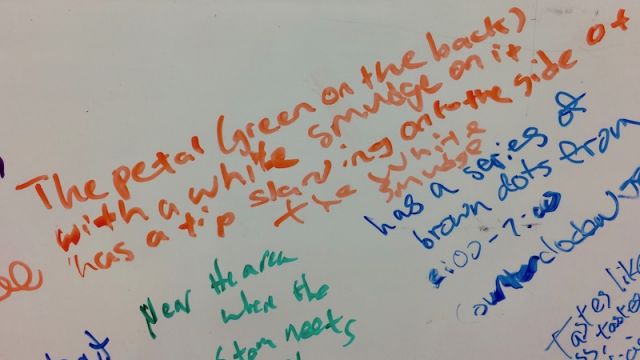 The petal (green on the back)
with a white smudge on it
has a tip slanting on to the side of
the white
smudge
has a series of
brown dots from
Near the area
where the
stem meets
Tastes like